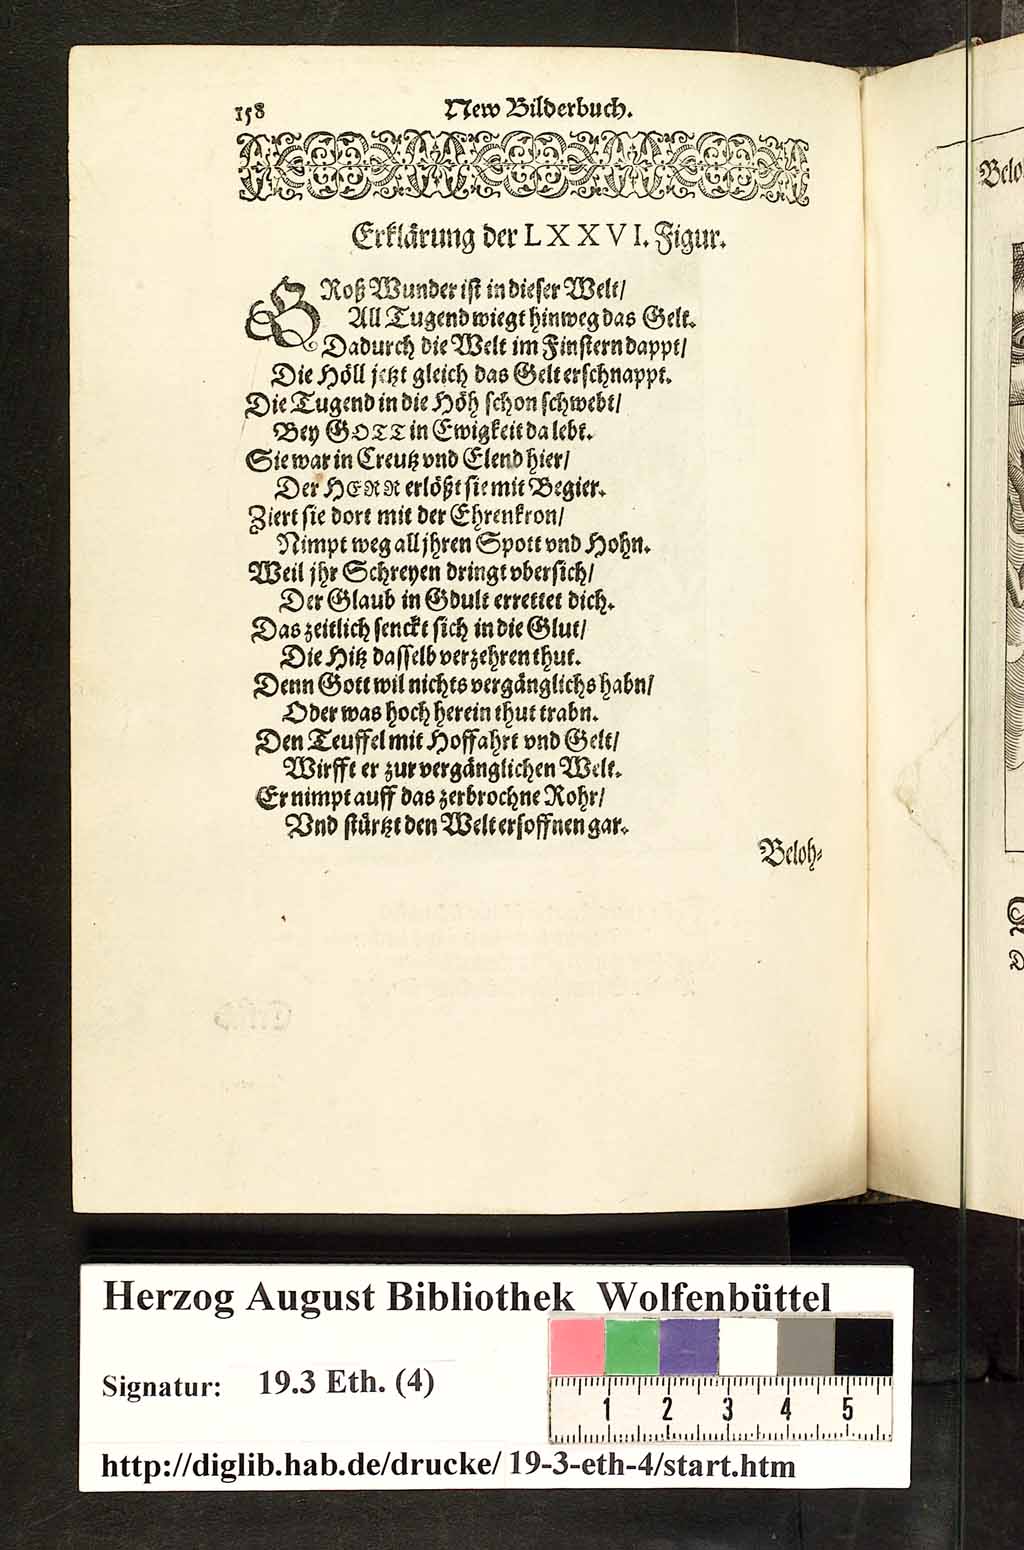 158 New Bilderbuch.
Erklärung der LXXVI. Figur.
GRoß Wunder ist in dieser Welt/
All Tugend wiegt hinweg das Gelt.
Dadurch die Welt im Finstern dappt/
Die Höll jetzt gleich das Gelt erschnappt.
Die Tugend in die Höh schon schwebt/
Bey GOTT in Ewigkeit da lebt.
Sie war in Creutz vnd Elend hier/
Der HERR erlößt sie mit Begier.
Ziert sie dort mit der Ehrenkron/
Nimpt weg all jhren Spott vnd Hohn.
Weil jhr Schreyen dringt vbersich/
Der Glaub in Gdult errettet dich.
Das zeitlich senckt sich in die Glut/
Die Hitz dasselb verzehren thut.
Denn Gott wil nichts vergänglichs habn/
Oder was hoch herein thut trabn.
Den Teuffel mit Hoffahrt vnd Gelt/
Wirfft er zur vergänglichen Welt.
Er nimpt auff das zerbrochne Rohr/
Vnd stürtzt den Welt ersoffnen gar.
Beloh-
Belo
Herzog August Bibliothek Wolfenbüttel
Signatur: 19.3 Eth. (4)
1 2 3 4 5
http://diglib.hab.de/drucke/ 19-3-eth-4/start.htm